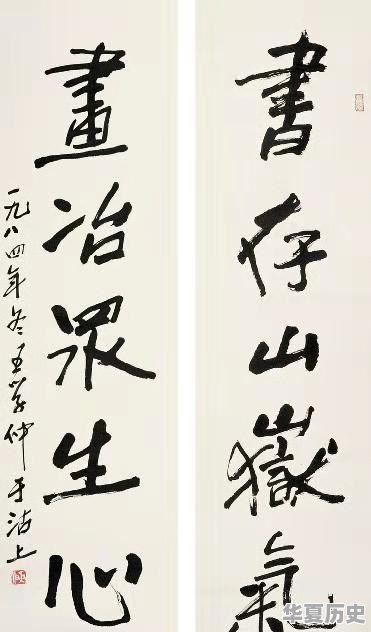 書存山嶽氣
畫冶眾生心
一九八四年冬王学仲于沽上
华夏历史